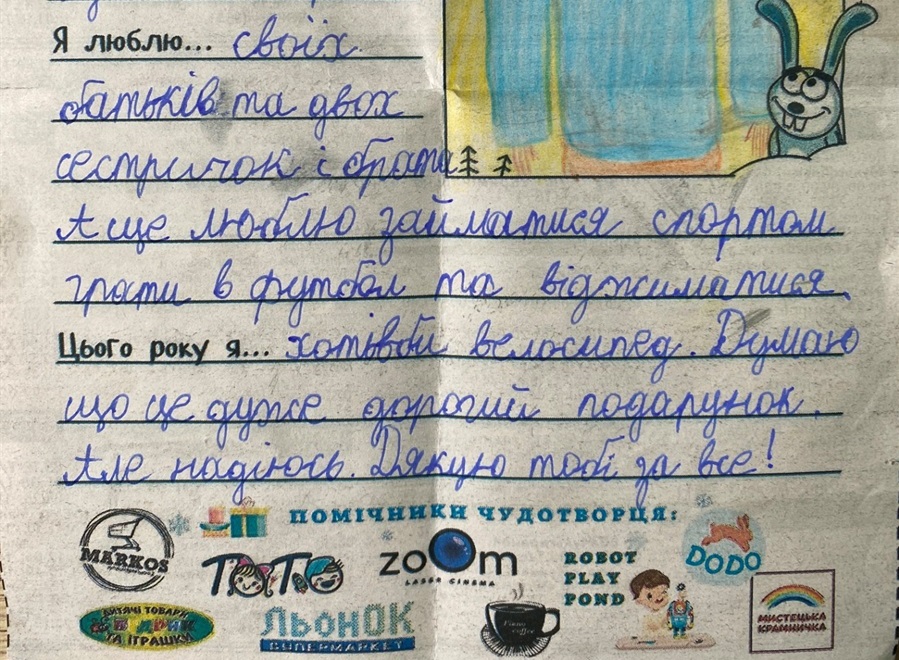 Я люблю... своїх
батьків та двох
сестричок і брата
А ще люблю займатися спортом
грати в футбол та віджиматися.
Цього року я... хотівби велосипед. Думаю
що це дуже дорогий подарунок.
Але надіюсь. Дякую тобі за все!
ПОМІЧНИКИ ЧУДОТВОРЦЯ:
MARKOS
ТАТО
ZOOM
LASER CINEMA
ROBOT
PLAY
POND
DODO
ДИТЯЧІ ТОВАРИ
ТА ІГРАШКИ
ЛЬОНОК
СУПЕРМАРКЕТ
coffee
МИСТЕЦЬКА
КРАМНИЧКА